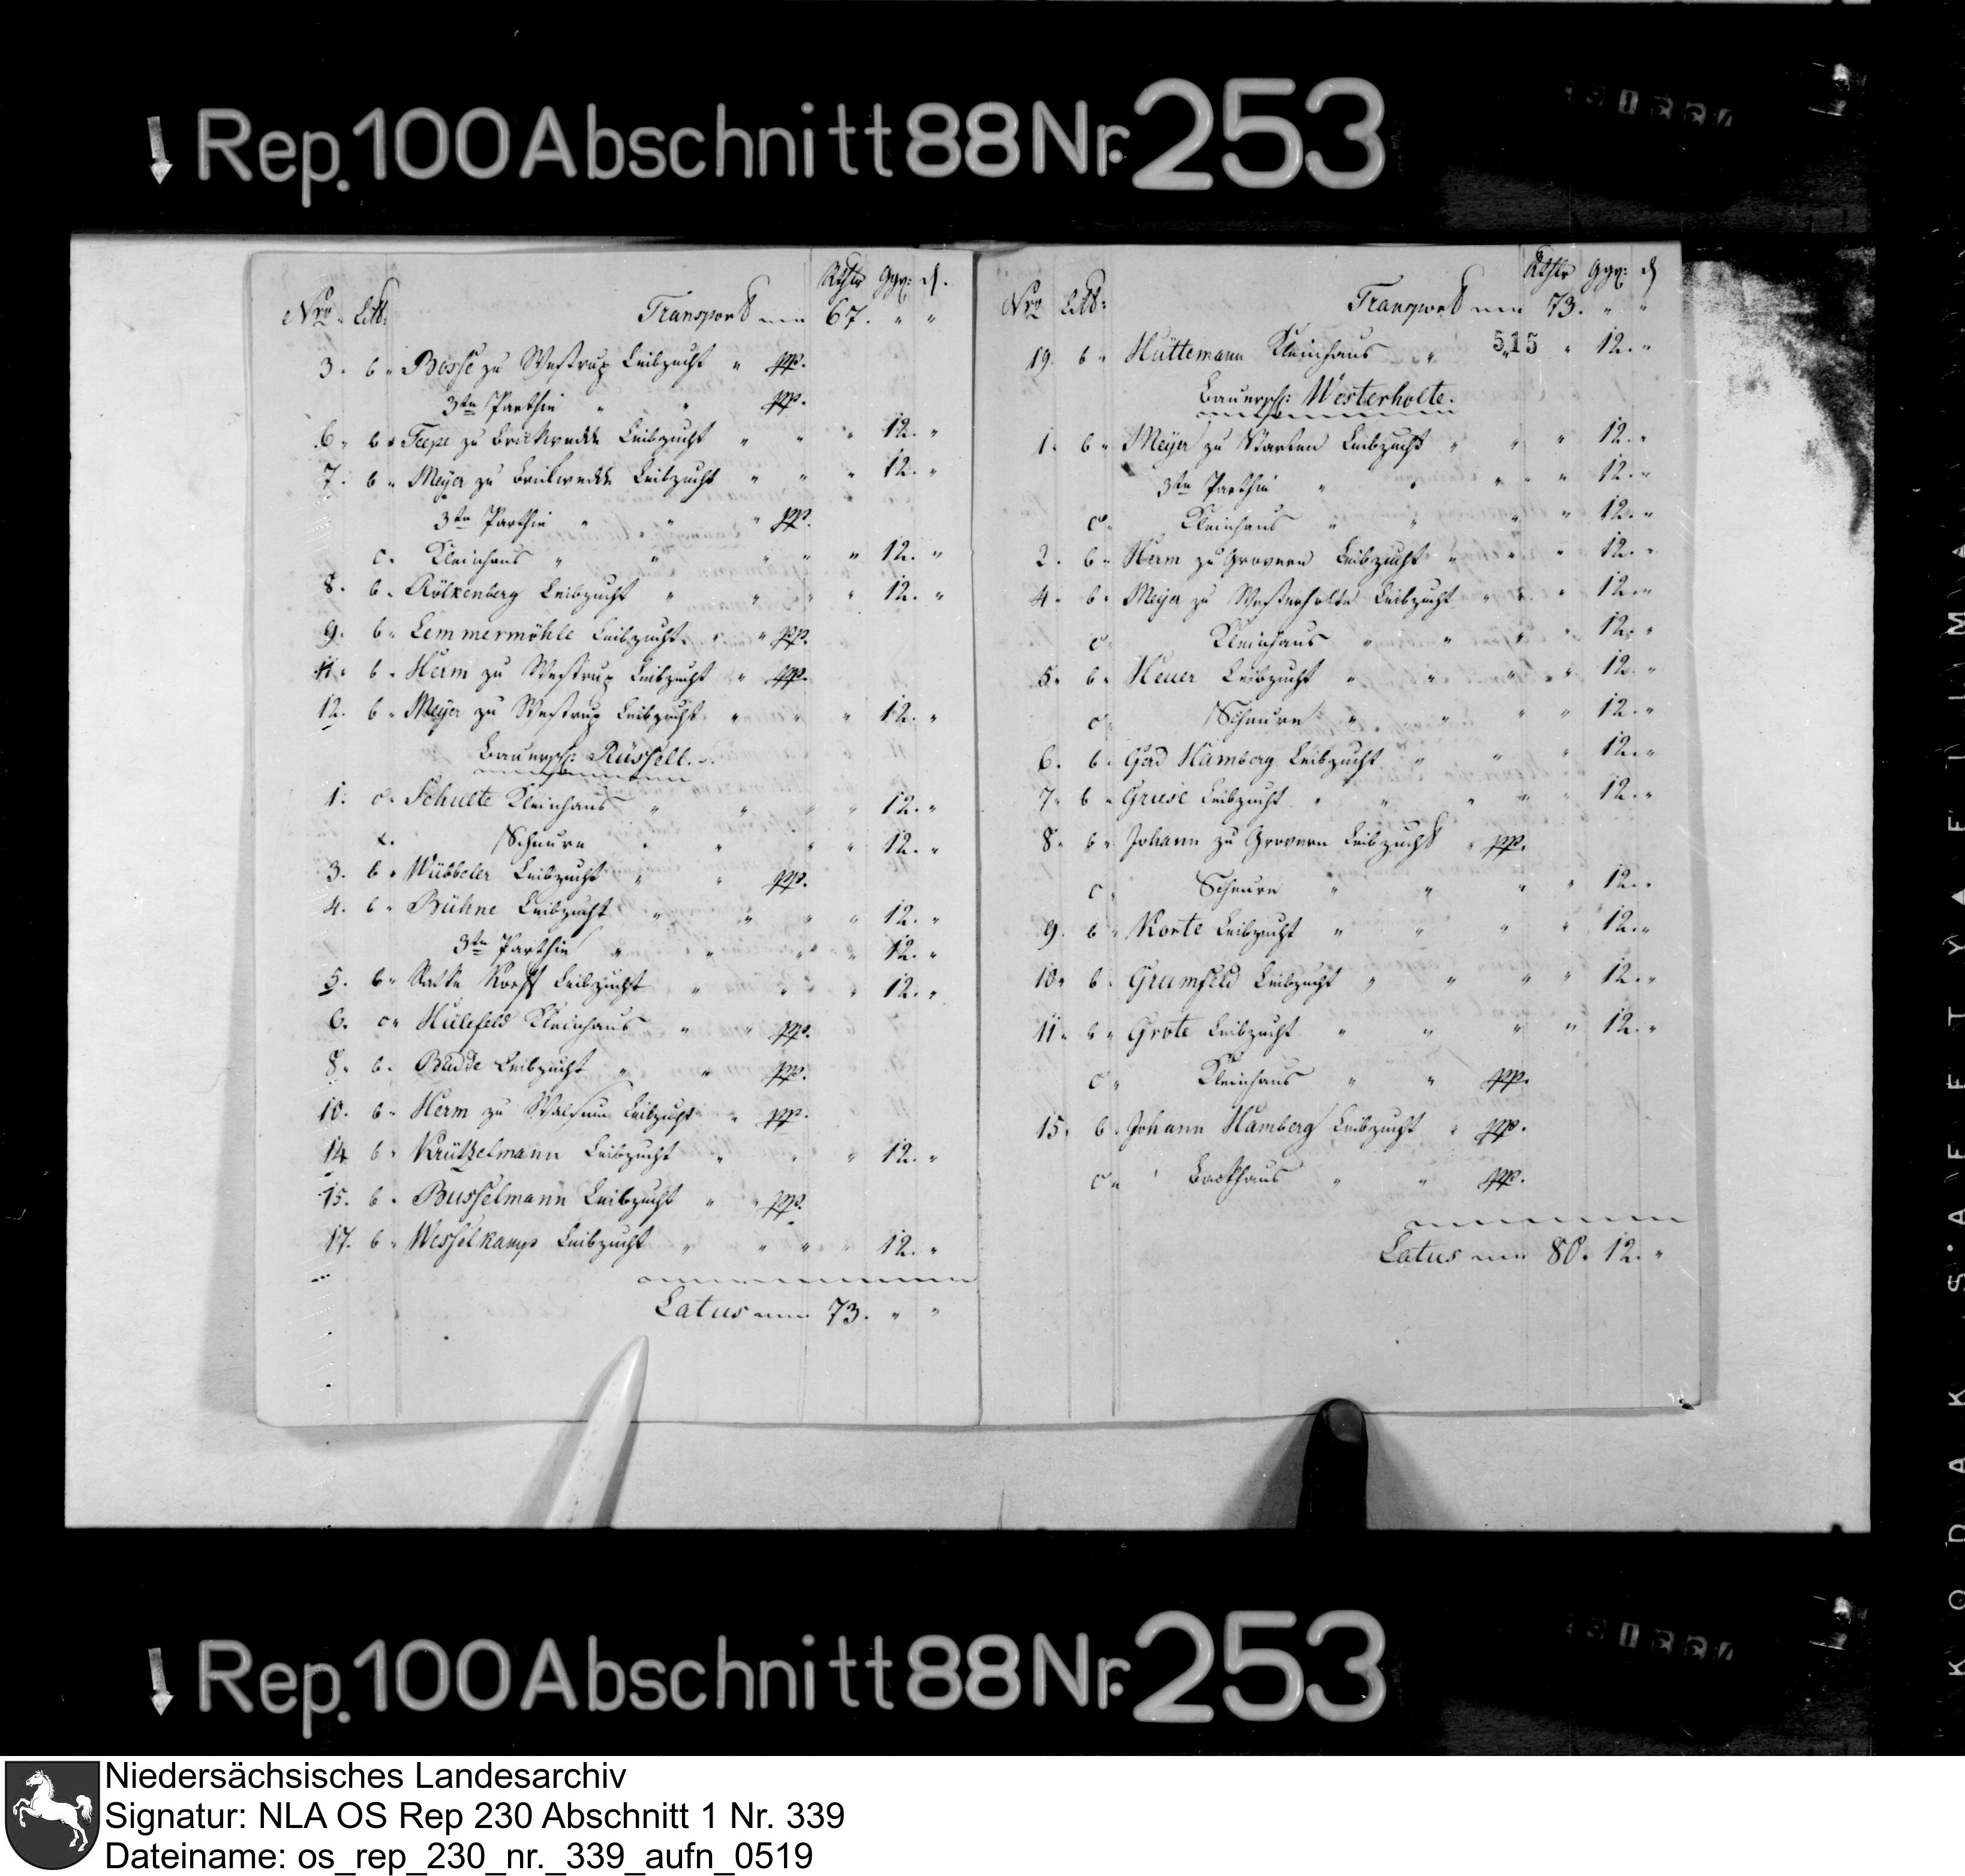 Rep. 100 Abschnitt 88 Nr. 253
Nro. Litt: Rthlr Ggr: d.
Transport 67. " "
3. b " Bosse zu Westrup Leibzucht " pp.
3te Parthie " " pp.
6. b " Teepe zu Brickwedde Leibzucht " " " 12. "
7. b " Meyer zu Brickwedde Leibzucht " " " 12. "
3te Parthie " " " pp.
c. Kleinhaus " " " " " 12. "
8. b. Rölkenberg Leibzucht " " " " 12. "
9. b " Lemmermöhle Leibzucht " " pp.
11. b. Herm zu Westrup Leibzucht " pp.
12. b " Meyer zu Westrup Leibzucht " " " 12. "
Bauersch: Rüssell.
1. c. Schulte Kleinhaus " " " " 12. "
Scheure " " " " 12. "
3. b " Wübbeler Leibzucht " " pp.
4. b " Bühne Leibzucht " " " " 12. "
3te Parthie " " " " 12. "
5. b " Leibzucht " " " 12. "
6. c " Hülefeld Kleinhaus " " pp.
8. b. Budde Leibzucht " " pp.
10. b " Herm zu Walsum Leibzucht " pp.
14 b " Krützelmann Leibzucht " " " 12. "
15. b. Busselmann Leibzucht " " pp.
17. b " Wesselkamp Leibzucht " " " " 12. "
Latus 73. " "
Nro Litt: Rthlr Ggr: d
Transport 73. " "
515
19. b " Hüttemann Kleinhaus " " 12. "
Bauersch: Westerholte.
1. b " Meyer zu Starten Leibzucht " " " 12. "
3te Parthie " " " " " 12. "
c " Kleinhaus " " " " 12. "
2. b " Herm zu Grovern Leibzucht " " " 12. "
4. b " Meyer zu Westerholte Leibzucht " " " 12. "
c " Kleinhaus " " " " 12. "
5. b. Heuer Leibzucht " " " " " 12. "
c " Scheure " " " " 12. "
6. b. Gerd Hamberg Leibzucht " " " 12. "
7. b " Griese Leibzucht " " " " " 12. "
8. b " Johann zu Grovern Leibzucht " pp.
c " Scheure " " " " 12. "
9. b " Korte Leibzucht " " " " 12. "
10. b. Grumfeld Leibzucht " " " " 12. "
11. b " Grote Leibzucht " " " " 12. "
c " Kleinhaus " " pp.
15. b. Johann Hamberg Leibzucht " pp.
c " Backhaus " " pp.
Latus 80. 12. "
Rep. 100 Abschnitt 88 Nr. 253
KODAK SAFETY FILM
Niedersächsisches Landesarchiv
Signatur: NLA OS Rep 230 Abschnitt 1 Nr. 339
Dateiname: os_rep_230_nr._339_aufn_0519